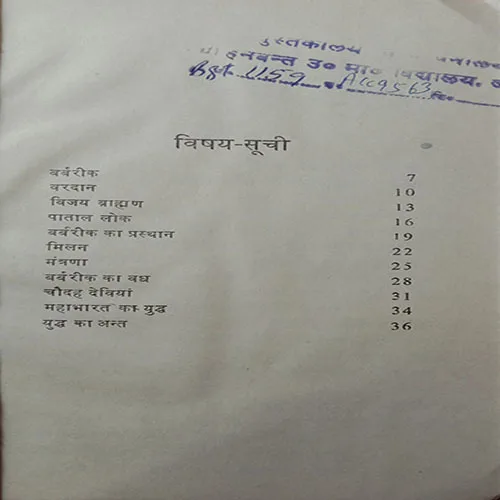 पुस्तकालय
हनवन्त उ० मा० विद्यालय,
1159 Acc 9563
विषय-सूची
बर्बरीक 7
वरदान 10
विजय ब्राह्मण 13
पाताल लोक 16
बर्बरीक का प्रस्थान 19
मिलन 22
मंत्रणा 25
बर्बरीक का वध 28
चौदह देवियां 31
महाभारत का युद्ध 34
युद्ध का अन्त 36